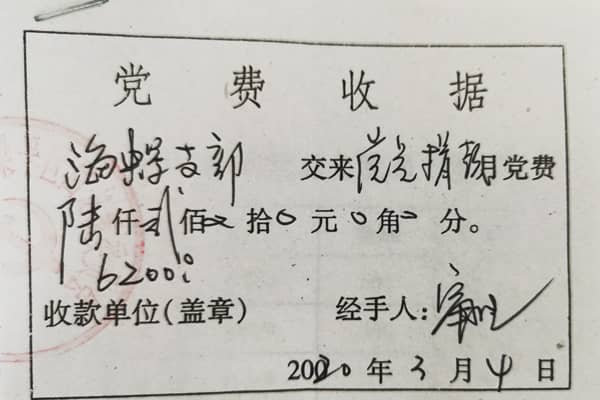 党费收据
海螺支部 交来党员捐款月党费
陆仟贰佰 拾0元0角0分。
6200:
收款单位(盖章) 经手人:
2020年3月4日